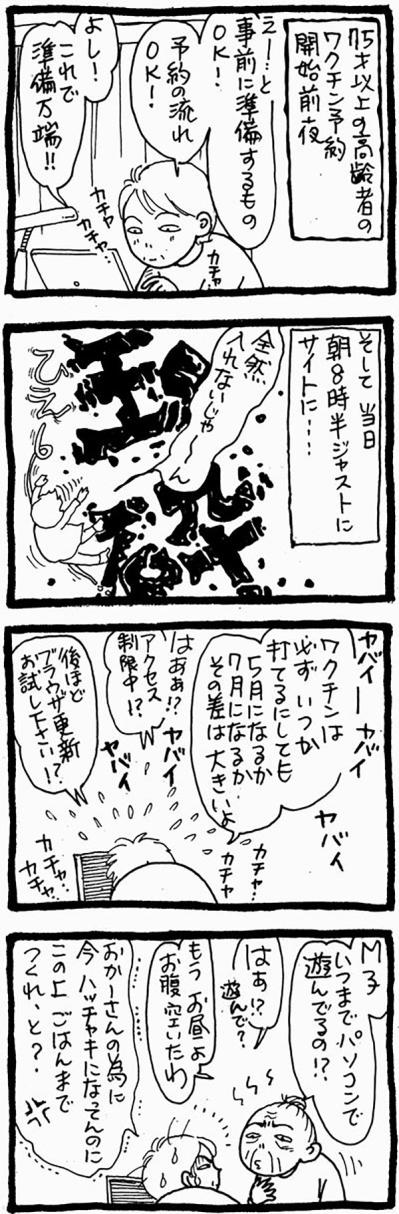 75才以上の高齢者の
ワクチン予約
開始前夜
えー…と
事前に準備するもの
OK!
予約の流れ
OK!
よし!
これで
準備万端!!
カチャ
カチャ…
カチャ…
そして 当日
朝8時半ジャストに
サイトに…
全然
入れないじゃ
ん
玉砕
ひえーん
ヤバイーヤバイ
ワクチンは
必ず いつか
打てるにしても
5月になるか
7月になるか
その差は大きいよ
ヤバイ
はあぁ!?
アクセス
制限中!?
ヤバイ
ヤバイ
後ほど
ブラウザ更新
お試し下さい!?
カチャ…
カチャ
カチャ…
カチャ…
M子
いつまでパソコンで
遊んでるの!?
はぁ!?
遊んで?
もう お昼よ
お腹空いたわ
おかーさんの為に
今 ハッチャキになってんのに
この上 ごはんまで
つくれ、と?